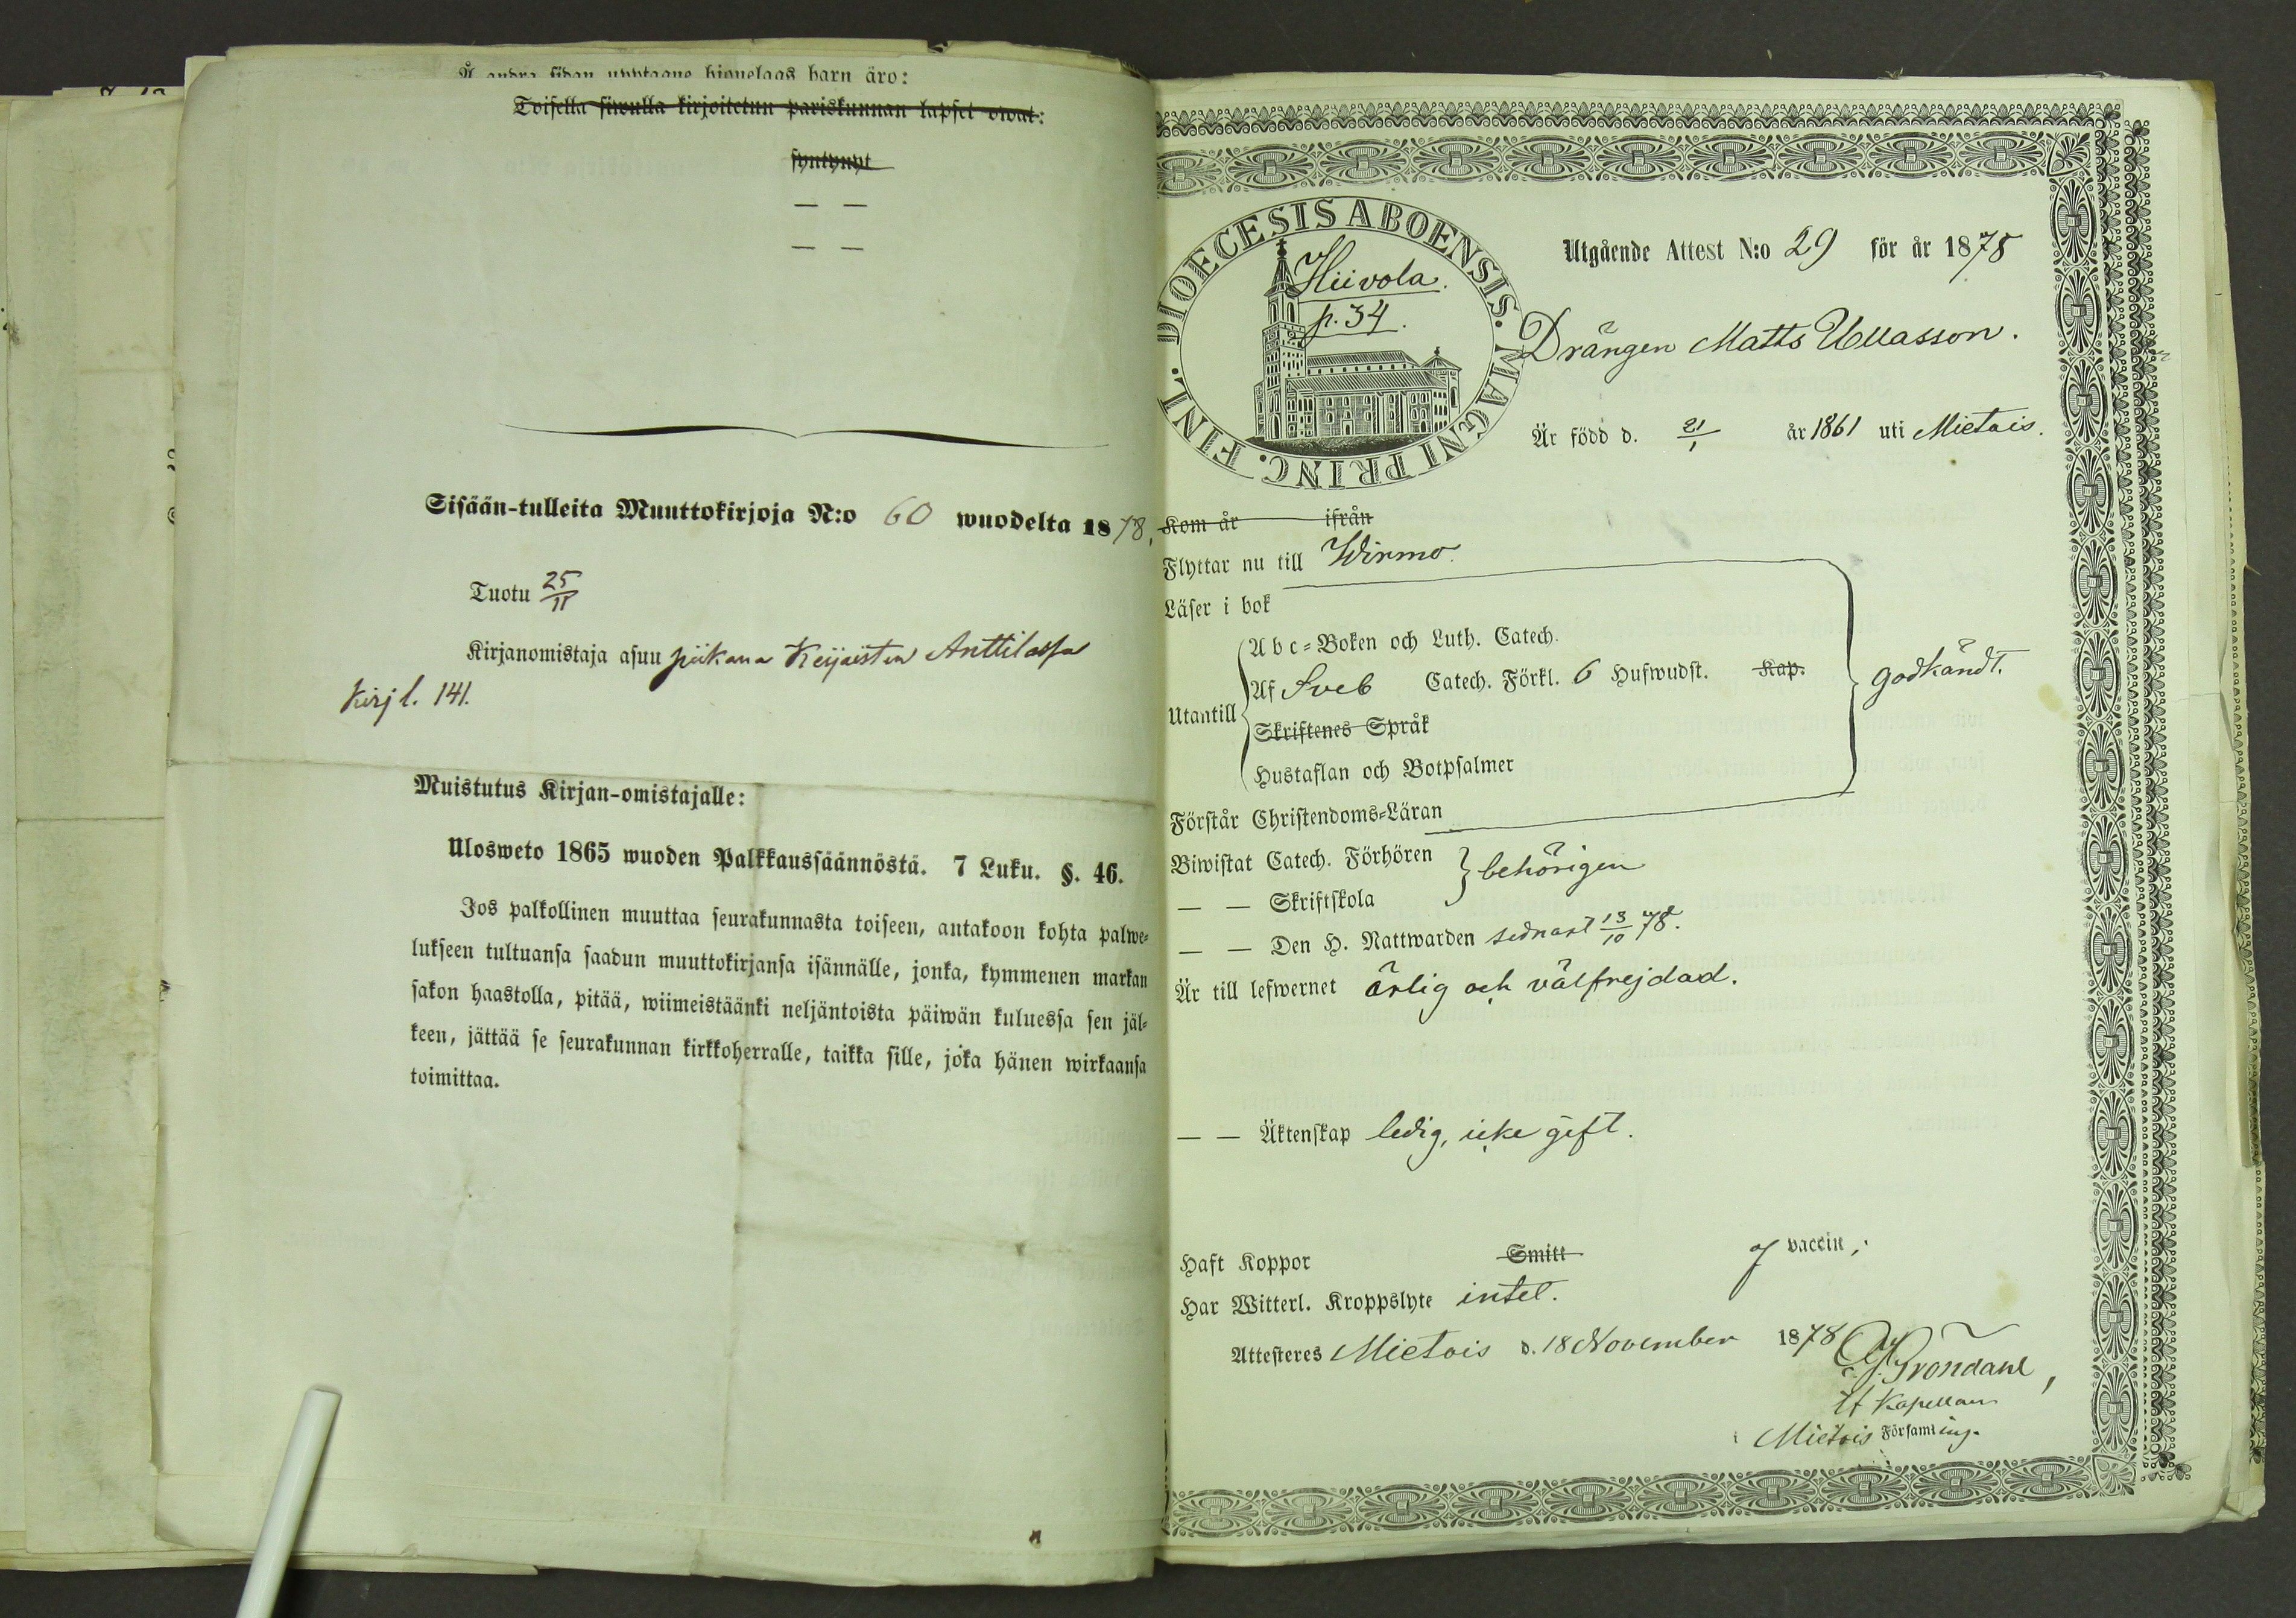 Å andra sidan upptagne hionelags barn äro:
Toisella siwulla kirjoitetun pariskunnan lapset owat:
syntynyt
— —
— —
Sisään-tulleita Muuttokirjoja N:o 60 wuodelta 1878,
Tuotu 25/11
Kirjanomistaja asuu piikana Keijaisten Anttilassa
Kirj l. 141.
Muistutus Kirjan-omistajalle:
Ulosweto 1865 wuoden Palkkaussäännöstä. 7 Luku. §. 46.
Jos palkollinen muuttaa seurakunnasta toiseen, antakoon kohta palwe-
lukseen tultuansa saadun muuttokirjansa isännälle, jonka, kymmenen markan
sakon haastolla, pitää, wiimeistäänki neljäntoista päiwän kuluessa sen jäl-
keen, jättää se seurakunnan kirkkoherralle, taikka sille, joka hänen wirkaansa
toimittaa.
DIOECESIS ABOENSIS. MAGNI PRINC. FINL.
Hiivola.
p. 34.
Utgående Attest N:o 29 för år 1878
Drängen Matts Ullasson.
Är född d. 21/1 år 1861 uti Mietois.
Kom år ifrån
Flyttar nu till Wirmo.
Läser i bok
Utantill
Abc-Boken och Luth. Catech.
Af Sveb Catech. Förkl. 6 Hufwudst. Kap.
Skriftenes Språk
Hustaflan och Botpsalmer
godkändt.
Förstår Christendoms-Läran
Biwistat Catech. Förhören
— — Skriftskola
behörigen
— — Den H. Nattwarden sednast 13/10 78.
Är till lefwernet ärlig och välfrejdad.
— — Äktenskap ledig, icke gift.
Haft Koppor Smitt vaccin,
Har Witterl. Kroppslyte intet.
Attesteres Mietois d. 18 November 1878
Grondahl,
Kapellan
i Mietois Församling.